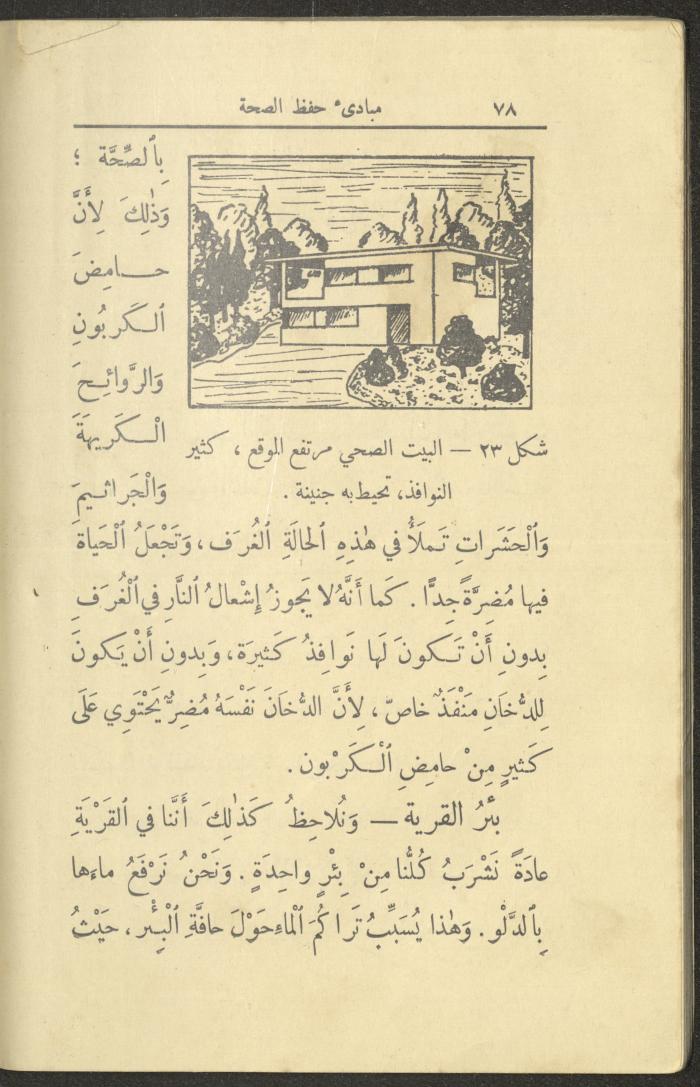 ٧٨ مبادىء حفظ الصحة
بِٱلصِّحَّة ؛
وَذٰلِكَ لِأَنَّ
حــامِضَ
ٱلْـكَربُونِ
وَالرَّوائِـحَ
الْـكَرِيهَةَ
وَالْجَراثـيمَ
شكل ٢٣ — البيت الصحي مرتفع الموقع ، كثير
النوافذ، تحيط به جنينة .
وَٱلْحَشَراتِ تَـملَأُ في هٰذِهِ ٱلحالَةِ ٱلغُرَف ، وَتَجْعَلُ ٱلْحَياةَ
فيها مُضِرَّةً جِدًّا . كَما أَنَّهُ لا يَجوزُ إِشْعالُ ٱلنَّارِ في ٱلْغُرَفِ
بِدونِ أَنْ تَـكونَ لَها نَوافِذُ كَثيرَة ، وَبِدونِ أَنْ يَكونَ
لِلدُّخانِ مَنْفَذٌ خاصّ ، لِأَنَّ الدُّخانَ نَفْسَهُ مُضِرٌّ يَحْتَوِي عَلَى
كَثيرٍ مِنْ حامِضِ ٱلْـكَرْبون .
بئرُ القرية — وَنُلاحِظُ كَذٰلِكَ أَنَّنا في ٱلقَرْيَةِ
عادَةً نَشْرَبُ كُلُّنا مِنْ بِئْرٍ واحِدَةٍ . وَنَحْنُ نَرْفَعُ ماءَها
بِٱلدَّلْو . وَهٰذا يُسَبِّبُ تَراكُمَ ٱلْماءِ حَوْلَ حافَّةِ ٱلْبِئْر ، حَيْثُ